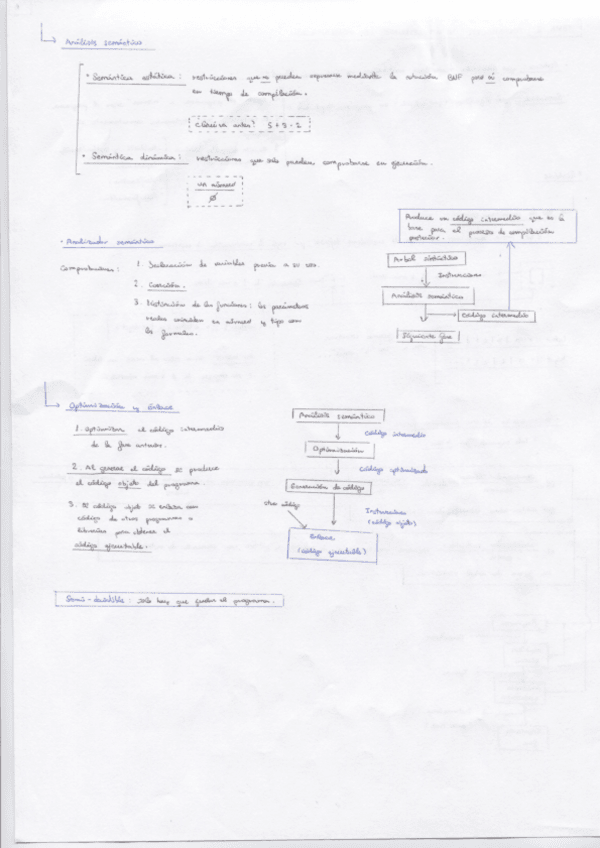 Análisis semántico
• Semántica estática: restricciones que no pueden expresarse mediante la notación BNF pero sí comprobarse
en tiempo de compilación.
antes? 5 + 3 - 2
• Semántica dinámica: restricciones que sólo pueden comprobarse en ejecución.
un número
Ø
Produce un código intermedio que es la
base para el proceso de compilación
posterior.
• Analizador semántico
Comprobaciones:
1. Declaración de variables previa a su uso.
2. Coerción.
3. de las funciones: los parámetros
reales coinciden en número y tipo con
los formales.
Árbol sintáctico
Instrucciones
Análisis semántico
Código intermedio
Siguiente fase
Optimización y enlace
1. Optimizar el código intermedio
de la fase anterior.
2. Al generar el código se produce
el código objeto del programa.
3. El código objeto se enlaza con
código de otros programas o
librerías para obtener el
código ejecutable.
Análisis semántico
Código intermedio
Optimización
Código optimizado
Generación de código
Otro código
Instrucciones
(código objeto)
Enlace
(código ejecutable)
Semi-decidible: sólo hay que el programa.